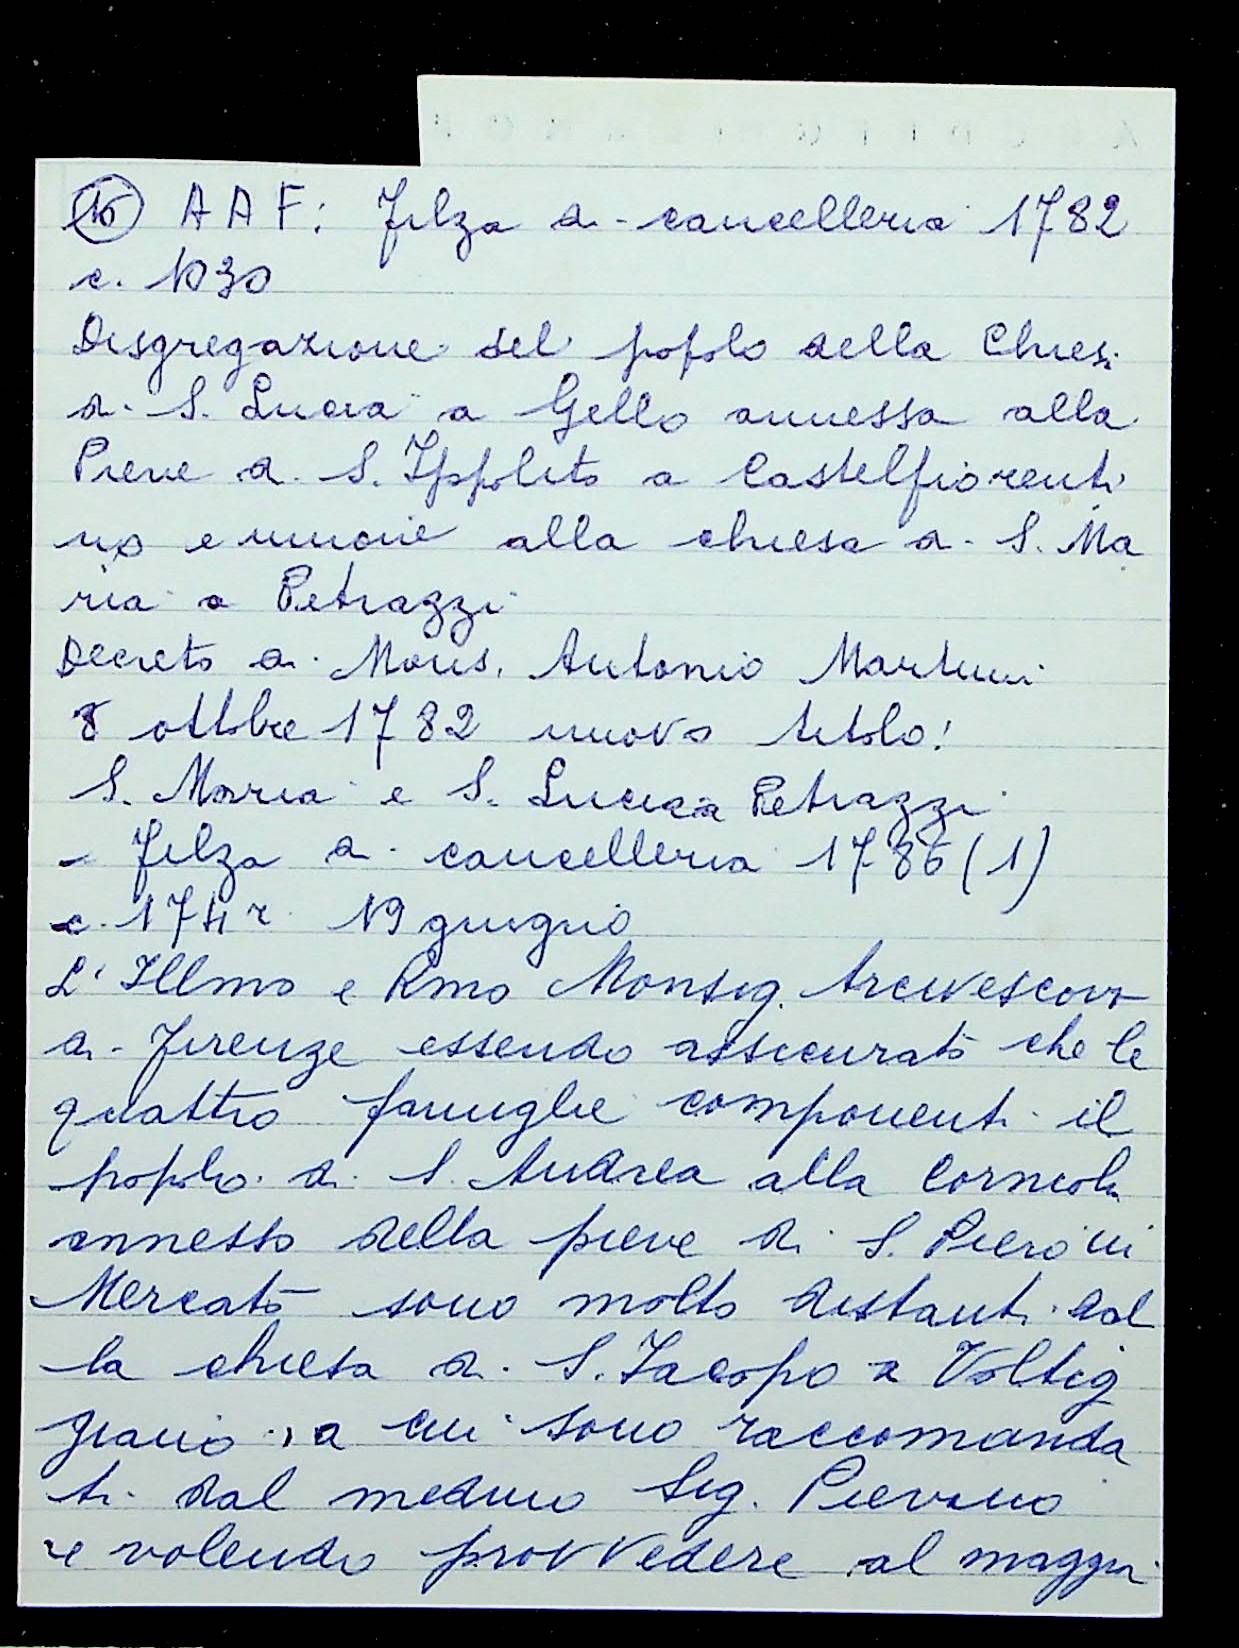 16 AAF: Filza di cancelleria 1782
c. 1030
Disgregazione del popolo della Chiesa
di S. Lucia a Gello annessa alla
Pieve di S. Ippolito a Castelfiorenti
no e unione alla chiesa di S. Ma
ria a Petrazzi
Decreto di Mons. Antonio Martini
8 ottobre 1782 nuovo titolo:
S. Maria e S. Lucia a Petrazzi
- Filza di cancelleria 1786 (1)
c. 174r 19 giugno
L'Illmo e Rmo Monsig. Arcivescovo
di Firenze essendo assicurato che le
quattro famiglie componenti il
popolo di S. Andrea alla Corniola
annesso della pieve di S. Piero in
Mercato sono molto distanti dal
la chiesa di S. Jacopo a Voltig
giano, a cui sono raccomanda
ti dal medmo Sig. Pievano
e volendo provvedere al maggior